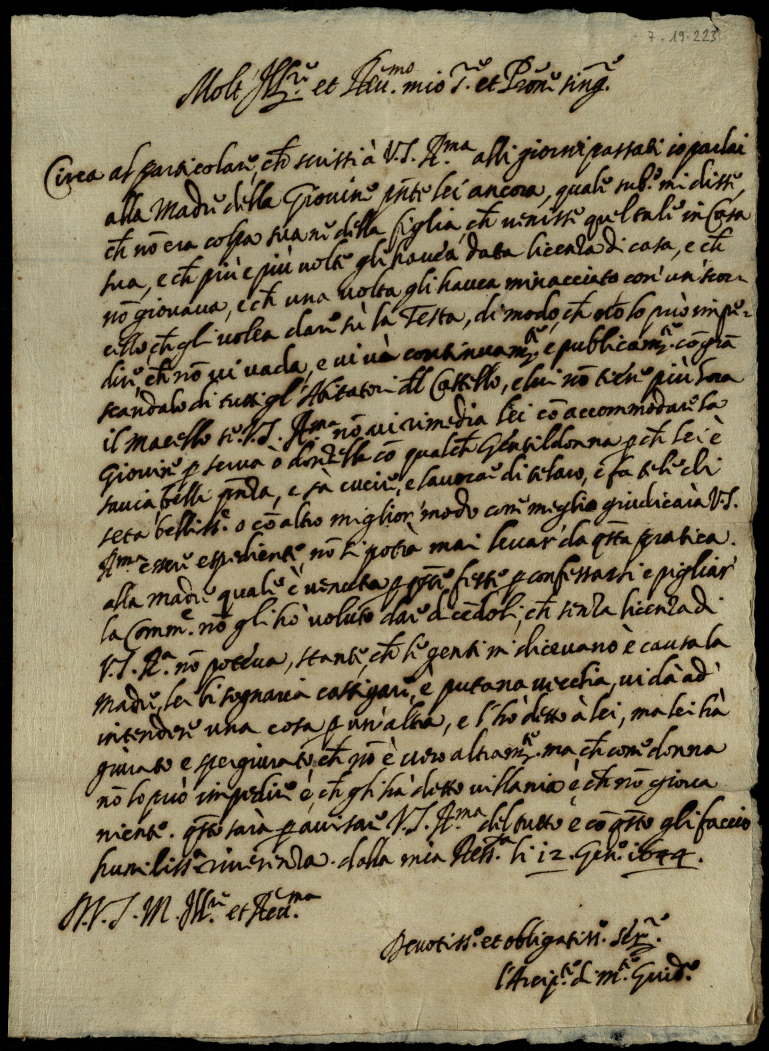 7.19.223
Molt' Ill.re et Reu.mo mio S.re et Prõne sing.e
Circa al particolare, ch̃ scrissi à V.S. R.ma alli giorni passati io parlai
alla Madre della Giovine pñte lei ancora, quale sub.o mi disse,
ch̃ nõ era colpa sua ne della figlia, ch̃ venisse quel tale in Casa
sua, e ch̃ più e più volte gli havea data licenza di casa, e ch̃
nõ giovava, e ch̃ una volta gli havea minacciato con un scor-
cello ch̃ gli volea dare sù la Testa, di modo, ch̃ nõ lo può impe-
dire, ch̃ nõ vi vada, e vi và continuam.te e publicam.te cõ grã
scandalo di tutti gl'Abitatori del Castello, e lui nõ tiene più hora
il macello se V.S. R.ma nõ vi rimedia lei cõ accommodare la
Giovine p serva ò donzella cõ qualch̃ Gentildonna p ch̃ lei è
savia, belli e sà cucire, e lavorare di telaro, e fa tele di
seta belliss.e o cõ altro miglior modo come meglio giudicarà V.S.
R.ma essere espediente, nõ si potrà mai levar da qsta pratica.
alla madre quale è venuta p qste feste p confessarsi e pigliar
la Comm.e nõ gli hò voluto dare di cedoli, ch̃ senza licenza di
V.S. R.a nõ poteva, stante, ch̃ le genti mi dicevano è causa la
Madre, lei bisognaria castigare, è putana vecchia, vi dà ad
intendere una cosa p un'altra, e l'hò detto à lei, ma lei hà
giurato e spergiurato, ch̃ nõ è vero altram.te ma ch̃ come donna
nõ lo può impedire, è ch̃ gli hà detto villanie è ch̃ nõ giova
niente. qsto sarà p avisare V.S. R.ma del tutto è cõ qsto gli faccio
humiliss.e riverenza. dalla mia Ress.a li 12. Gen.o 1644.
D.V.S.M. Ill.re et Reu.ma
Devotiss.o et obligatiss.o Ser.re
l'Arcip.te di m.te Guid.o